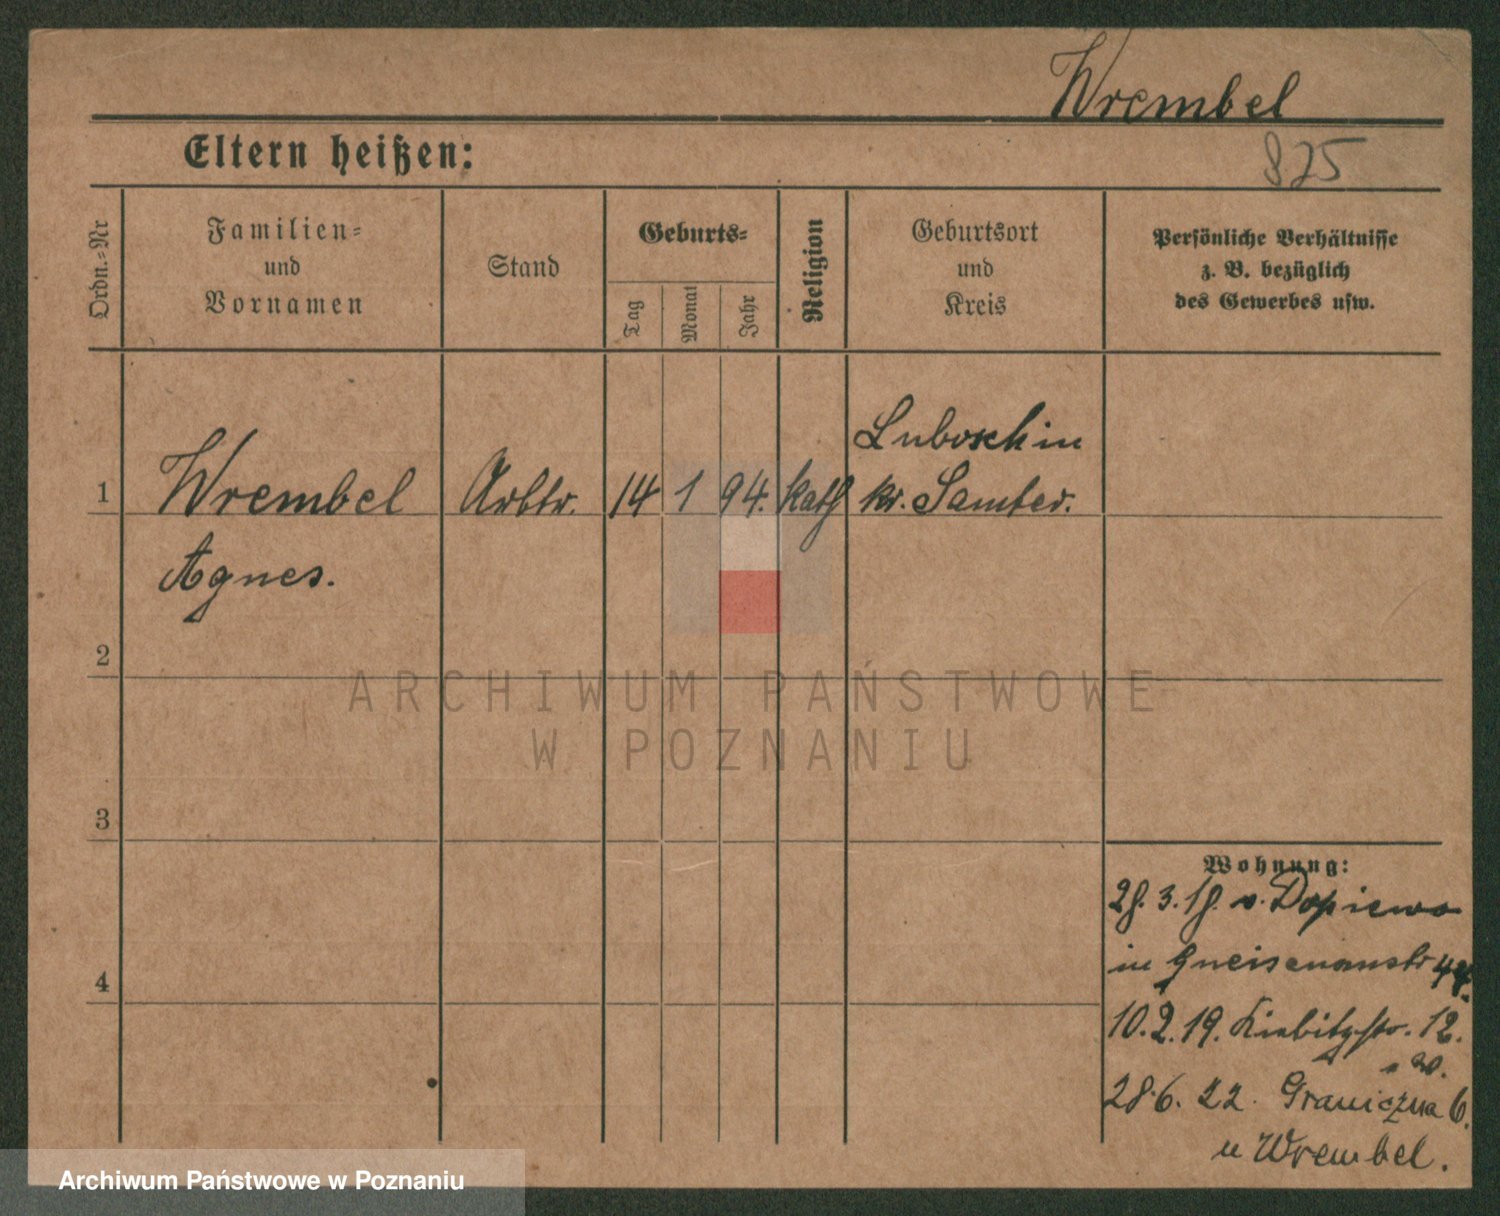 Wrembel
825
Eltern heißen:
Ordn.-Nr
Familien-
und
Vornamen
Stand
Geburts-
Tag
Monat
Jahr
Religion
Geburtsort
und
Kreis
Persönliche Verhältnisse
z. B. bezüglich
des Gewerbes usw.
1
Wrembel
Agnes.
Arbtr.
14
1
94.
kath
Luboschin
Kr. Samter.
2
3
4
Wohnung:
28. 3. 18. v. Dopiewo
in Gneisenaustr 44.
10.2.19. Kiebitzstr. 12.
28.6.22. Graniczna 6.
Wrembel.
ARCHIWUM PAŃSTWOWE
W POZNANIU
Archiwum Państwowe w Poznaniu